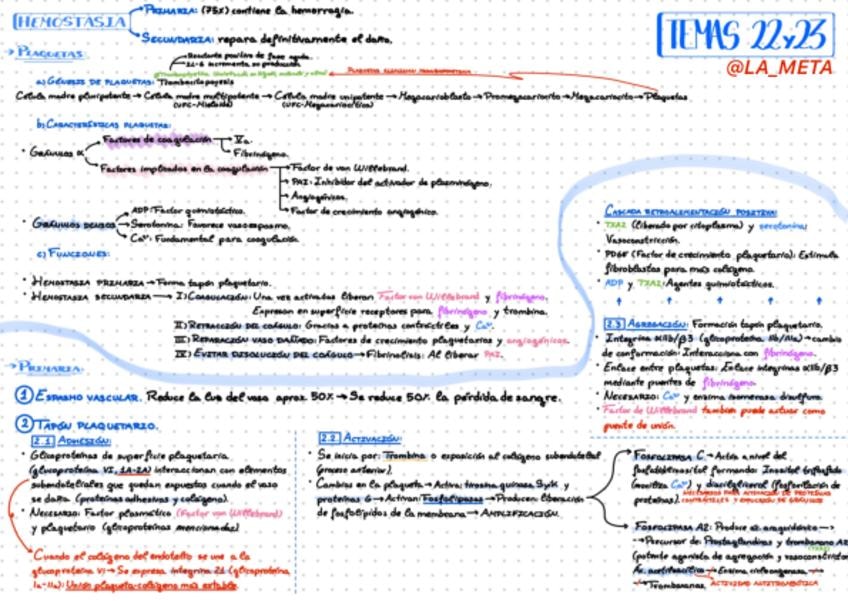 HEMOSTASIA
PRIMARIA: (75%) contiene la hemorragia.
SECUNDARIA: repara definitivamente el daño.
TEMAS 22 y 23
@LA_META
→ PLAQUETAS
Reactante positivo de fase aguda
IL-6 incrementa su producción
a) GÉNESIS DE PLAQUETAS: Trombocitopoyesis
Célula madre pluripotente → Célula madre multipotente → Célula madre unipotente → Megacarioblasto → Promegacariocito → Megacariocito → Plaquetas
(UFC-Mieloide) (UFC-Megacariocítica)
b) CARACTERÍSTICAS PLAQUETAS:
• GRÁNULOS α
Factores de coagulación
Va.
Fibrinógeno.
Factores implicados en la coagulación
Factor de von Willebrand.
PAI: Inhibidor del activador de plasminógeno.
Angiogénicos.
Factor de crecimiento angiogénico.
• GRÁNULOS DENSOS
ADP: Factor quimiotáctico.
Serotonina: Favorece vasoespasmo.
Ca²⁺: Fundamental para coagulación.
c) FUNCIONES:
• HEMOSTASIA PRIMARIA → Forma tapón plaquetario.
• HEMOSTASIA SECUNDARIA → I) COAGULACIÓN: Una vez activadas liberan Factor von Willebrand y fibrinógeno.
Expresan en superficie receptores para fibrinógeno y trombina.
II) RETRACCIÓN DEL COÁGULO: Gracias a proteínas contráctiles y Ca²⁺.
III) REPARACIÓN VASO DAÑADO: Factores de crecimiento plaquetarios y angiogénicos.
IV) EVITAR DISOLUCIÓN DEL COÁGULO → Fibrinolisis: Al liberar PAI.
→ PRIMARIA:
① ESPASMO VASCULAR. Reduce la luz del vaso aprox. 50% → Se reduce 50% la pérdida de sangre.
② TAPÓN PLAQUETARIO.
2.1 ADHESIÓN:
• Glicoproteínas de superficie plaquetaria
(glicoproteína VI, 1A-2A) interaccionan con elementos
subendoteliales que quedan expuestos cuando el vaso
se daña (proteínas adhesivas y colágeno).
• NECESARIO: Factor plasmático (Factor von Willebrand)
y plaquetario (glicoproteínas mencionadas)
Cuando el colágeno del endotelio se une a la
glicoproteína VI → Se expresa integrina 21 (glicoproteína
Ia-IIa): Unión plaqueta-colágeno más estable.
2.2 ACTIVACIÓN:
• Se inicia por: Trombina o exposición al colágeno subendotelial
(proceso anterior).
• Cambios en la plaqueta → Activa: tirosina quinasa Syk y
proteínas G → Activan: Fosfolipasas → Producen liberación
de fosfolípidos de la membrana → AMPLIFICACIÓN.
CASCADA RETROALIMENTACIÓN POSITIVA:
• TXA2 (liberado por citoplasma) y serotonina:
Vasoconstricción.
• PDGF (Factor de crecimiento plaquetario): Estimula
fibroblastos para más colágeno.
• ADP y TXA2: Agentes quimiotácticos.
2.3 AGREGACIÓN: Formación tapón plaquetario.
• Integrina αIIb/β3 (glicoproteína IIb/IIIa) → cambio
de conformación: Interacciona con fibrinógeno.
• Enlace entre plaquetas: Enlace integrinas αIIb/β3
mediante puentes de fibrinógeno.
• NECESARIO: Ca²⁺ y enzima isomerasa disulfuro.
• Factor de Willebrand también puede actuar como
puente de unión.
FOSFOLIPASA C → Actúa a nivel del
fosfatidilinositol formando: Inositol trifosfato
(moviliza Ca²⁺) y diacilglicerol (fosforilación de
proteínas).
NECESARIOS PARA ACTIVACIÓN DE PROTEÍNAS
CONTRÁCTILES Y EMULSIÓN DE GRÁNULOS
FOSFOLIPASA A2: Produce ac. araquidónico →
→ Percursor de: Prostaglandinas y tromboxano A2
(TXA2)
(potente agonista de agregación y vasoconstrictor
Ac. acetilsalicílico → Enzima ciclooxigenasa →
→ Tromboxanos. ACTIVIDAD ANTITROMBÓTICA